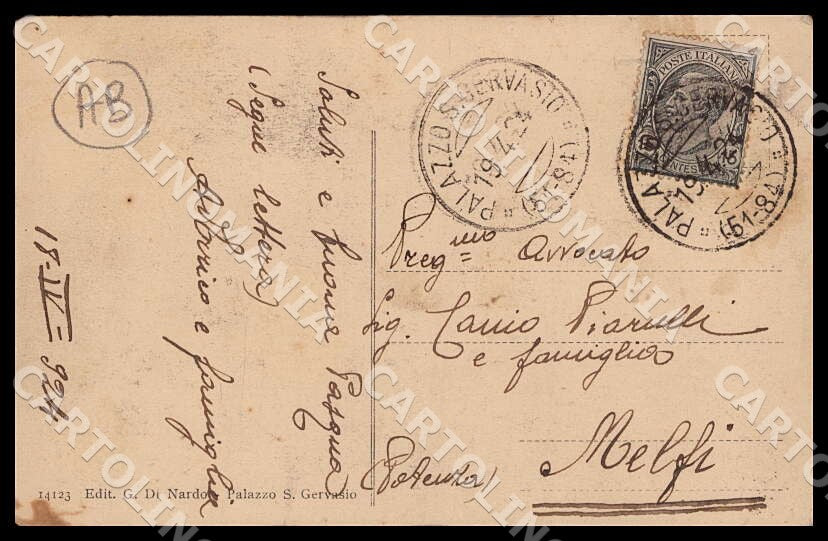 AB
Saluti e buona Pasqua
(Segue lettera)
Americo e famiglia
18-IV=924
14123 Edit. G. Di Nardo - Palazzo S. Gervasio
PALAZZO S. GERVASIO
19.4.24
(51-84)
POSTE ITALIANE
PALAZZO S. GERVASIO
19.4.24
(51-84)
Preg.mo Avvocato
Sig. Canio Piarulli
e famiglia
Melfi
(Potenza)
CARTOLINOMANIA